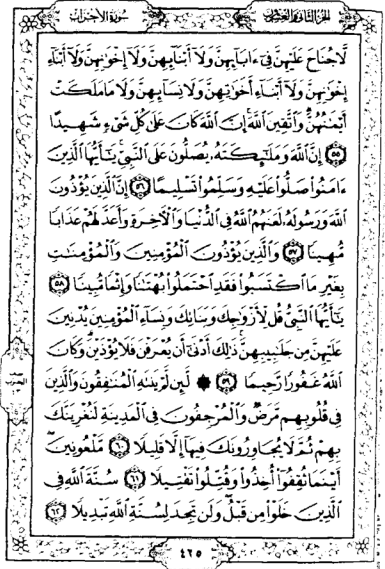 سُورَةُ الأَحْزَابِ الجُزْءُ الثَّانِي وَالعِشْرُونَ
لَّا جُنَاحَ عَلَيْهِنَّ فِىٓ ءَابَآئِهِنَّ وَلَآ أَبْنَآئِهِنَّ وَلَآ إِخْوَٰنِهِنَّ وَلَآ أَبْنَآءِ
إِخْوَٰنِهِنَّ وَلَآ أَبْنَآءِ أَخَوَٰتِهِنَّ وَلَا نِسَآئِهِنَّ وَلَا مَا مَلَكَتْ
أَيْمَٰنُهُنَّ وَٱتَّقِينَ ٱللَّهَ إِنَّ ٱللَّهَ كَانَ عَلَىٰ كُلِّ شَىْءٍ شَهِيدًا
٥٥ إِنَّ ٱللَّهَ وَمَلَٰٓئِكَتَهُۥ يُصَلُّونَ عَلَى ٱلنَّبِىِّ يَٰٓأَيُّهَا ٱلَّذِينَ
ءَامَنُوا۟ صَلُّوا۟ عَلَيْهِ وَسَلِّمُوا۟ تَسْلِيمًا ٥٦ إِنَّ ٱلَّذِينَ يُؤْذُونَ
ٱللَّهَ وَرَسُولَهُۥ لَعَنَهُمُ ٱللَّهُ فِى ٱلدُّنْيَا وَٱلْءَاخِرَةِ وَأَعَدَّ لَهُمْ عَذَابًا
مُّهِينًا ٥٧ وَٱلَّذِينَ يُؤْذُونَ ٱلْمُؤْمِنِينَ وَٱلْمُؤْمِنَٰتِ
بِغَيْرِ مَا ٱكْتَسَبُوا۟ فَقَدِ ٱحْتَمَلُوا۟ بُهْتَٰنًا وَإِثْمًا مُّبِينًا ٥٨
يَٰٓأَيُّهَا ٱلنَّبِىُّ قُل لِّأَزْوَٰجِكَ وَبَنَاتِكَ وَنِسَآءِ ٱلْمُؤْمِنِينَ يُدْنِينَ
عَلَيْهِنَّ مِن جَلَٰبِيبِهِنَّ ذَٰلِكَ أَدْنَىٰٓ أَن يُعْرَفْنَ فَلَا يُؤْذَيْنَ وَكَانَ
ٱللَّهُ غَفُورًا رَّحِيمًا ٥٩ ۞ لَّئِن لَّمْ يَنتَهِ ٱلْمُنَٰفِقُونَ وَٱلَّذِينَ
فِى قُلُوبِهِم مَّرَضٌ وَٱلْمُرْجِفُونَ فِى ٱلْمَدِينَةِ لَنُغْرِيَنَّكَ
بِهِمْ ثُمَّ لَا يُجَاوِرُونَكَ فِيهَآ إِلَّا قَلِيلًا ٦٠ مَّلْعُونِينَ
أَيْنَمَا ثُقِفُوٓا۟ أُخِذُوا۟ وَقُتِّلُوا۟ تَقْتِيلًا ٦١ سُنَّةَ ٱللَّهِ فِى
ٱلَّذِينَ خَلَوْا۟ مِن قَبْلُ وَلَن تَجِدَ لِسُنَّةِ ٱللَّهِ تَبْدِيلًا ٦٢
٤٢٥